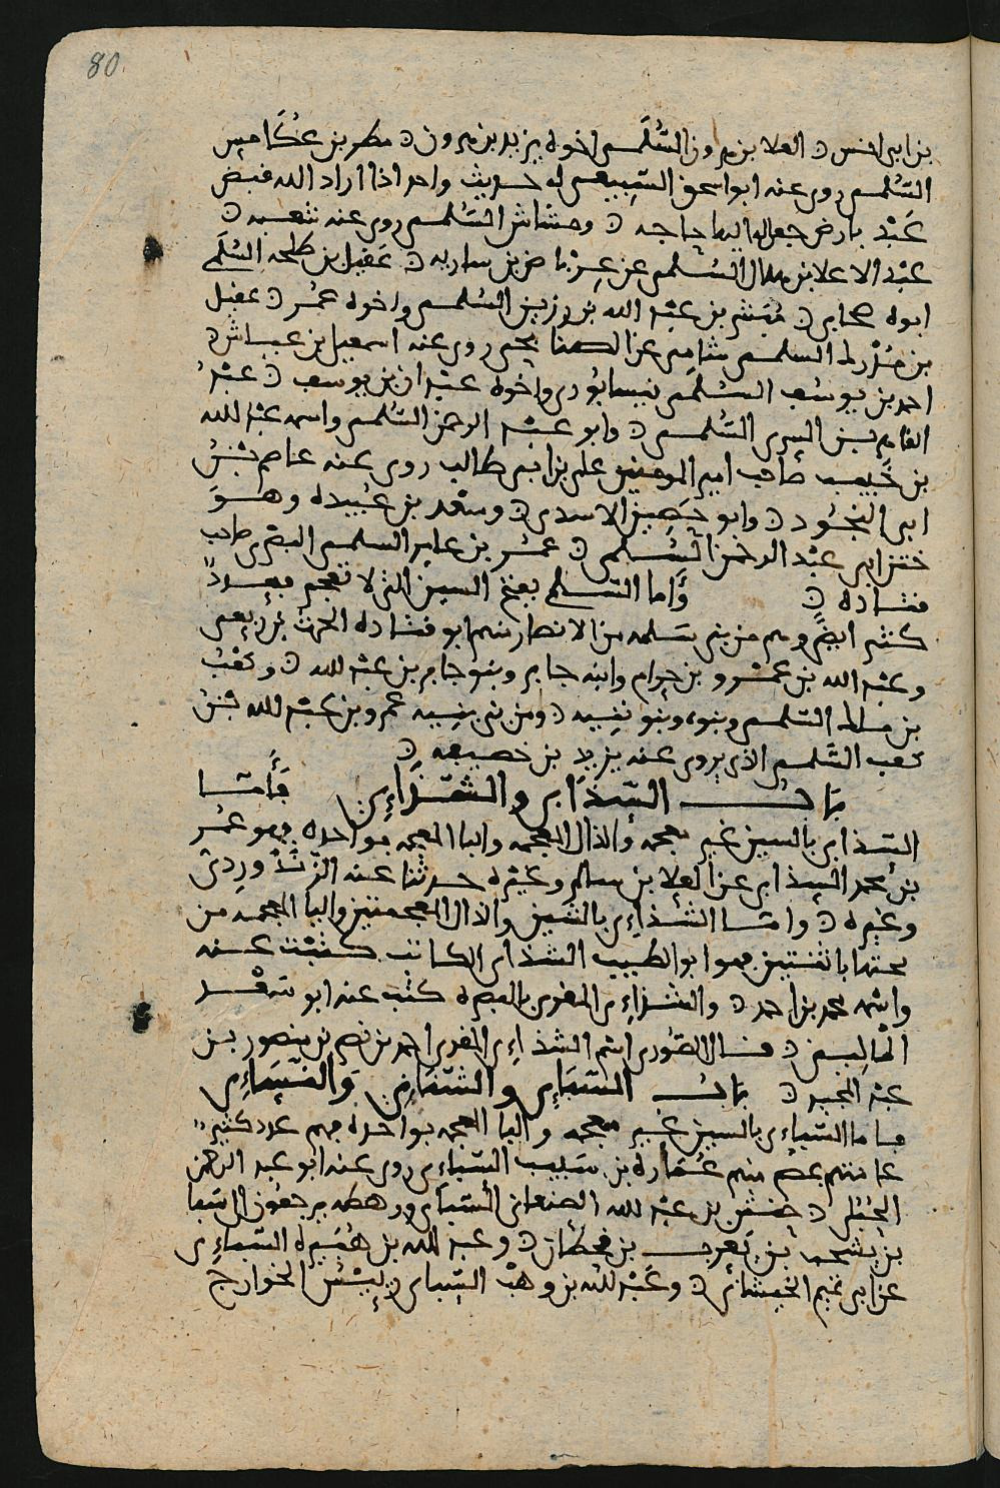 80
بن ابي انس ن العلا بن هرون السُّلَمي اخوه يزيد بن هرون ن مطر بن عُكَامِس
السُّلمي روى عنه ابو اسحق السَّبيعي له حديث واحد اذا اراد الله قبض
عَبْد بارض جعل له اليها حاجه ن ومشاش السُّلمي روى عنه شعبه ن
عبْد الاعلا بن هلال السُّلمي عن عِرْباض بن ساريه ن عَقيل بن طلحه السُّلَمي
ابوه صحابي ن مُبَشر بن عبْد الله بن رزين السُّلمي واخوه عُمر ن عقيل
بن مُدْرك السلمي شامي عن الصنابحي روى عنه اسمعيل بن عياش ن
احمد بن يوسُف السُّلمي نيسابُوري واخوه عبْدان بن يوسف ن عبْدُ
بن السري السُّلمي ن وابو عبْد الرحمن السُّلمي واسمه عبْد الله
بن حَبيب صاحب امير المومنين علي بن ابي طالب روى عنه عاصم بْنُ
ابي النجُود ن وابو حَصِين الاسدي ن وسَعْد بن عُبيده وهُوَ
ختن ابي عبْد الرحمن السُّلمي ن عُمر بن عامر السلمي البصْري صاحب
قتاده ن وَاما السَّلمي بفتح السين
كثير ايضًا وهم من بني سَلمه من الانصار منهم ابو قتاده الحرث بن رِبعي
وعبْد الله بن عمْرو بن حرام وابنه جابر وبنو جابر بن عبْد الله ن وكعْبُ
بن ملك السَّلمي وبنوه وبنو بنيه ن ومن بني بنيه عمرو بن عبْد الله بْنِ
كعب السَّلمي الذي يروي عنه يزيد بن خصيفه ن
بَاب السَّذَابي والشَّذَاءِي فَأَمَّا
السَّذابي بالسين غير معجمه والذال المعجمه والبا المعجمه بواحده فهو عُمر
بن محمد السذابي عن العلا بن سالم وغيْره حدثنا عنه
وغيره ن وامّا الشذاءِي بالشين والذال المعجمتين واليا المعجمه من
تحتها باثنتين فهو ابو الطيب الشذاءي الكاتب كتبْت عنه
واسْمه محمد بن احمد ن والشذاءِي المقري بالبصره كتب عنه ابو سَعْد
المالِيني ن قال الصُوري اسْم الشذاءِي المقري احمد بن نصر بن منصور بن
عبْد المجيد ن بَابُ السَّبَايي والشَّبَاي وَالنَّسَاءِي
فاما السَّباءِي بالسين غير معجمه والبا المعجمه بواحده فهم عدد كثير
عامتهم بمصْر منهم عُمَارة بن شبيب السَّباءِي روى عنه ابو عبد الرحمن
الحُبُلي ن حنش بن عبْد الله الصنعاني السَّباي ورهطه يرجعون الى سَبا
بن يشجب بن يَعرب بن قحطان ن وعبْد الله بن هُبَيْره السَّباءِي
عن ابي تميم الجيشاني ن وعَبْد الله بن وهْب السَّباي رئِيْسُ الخوارج